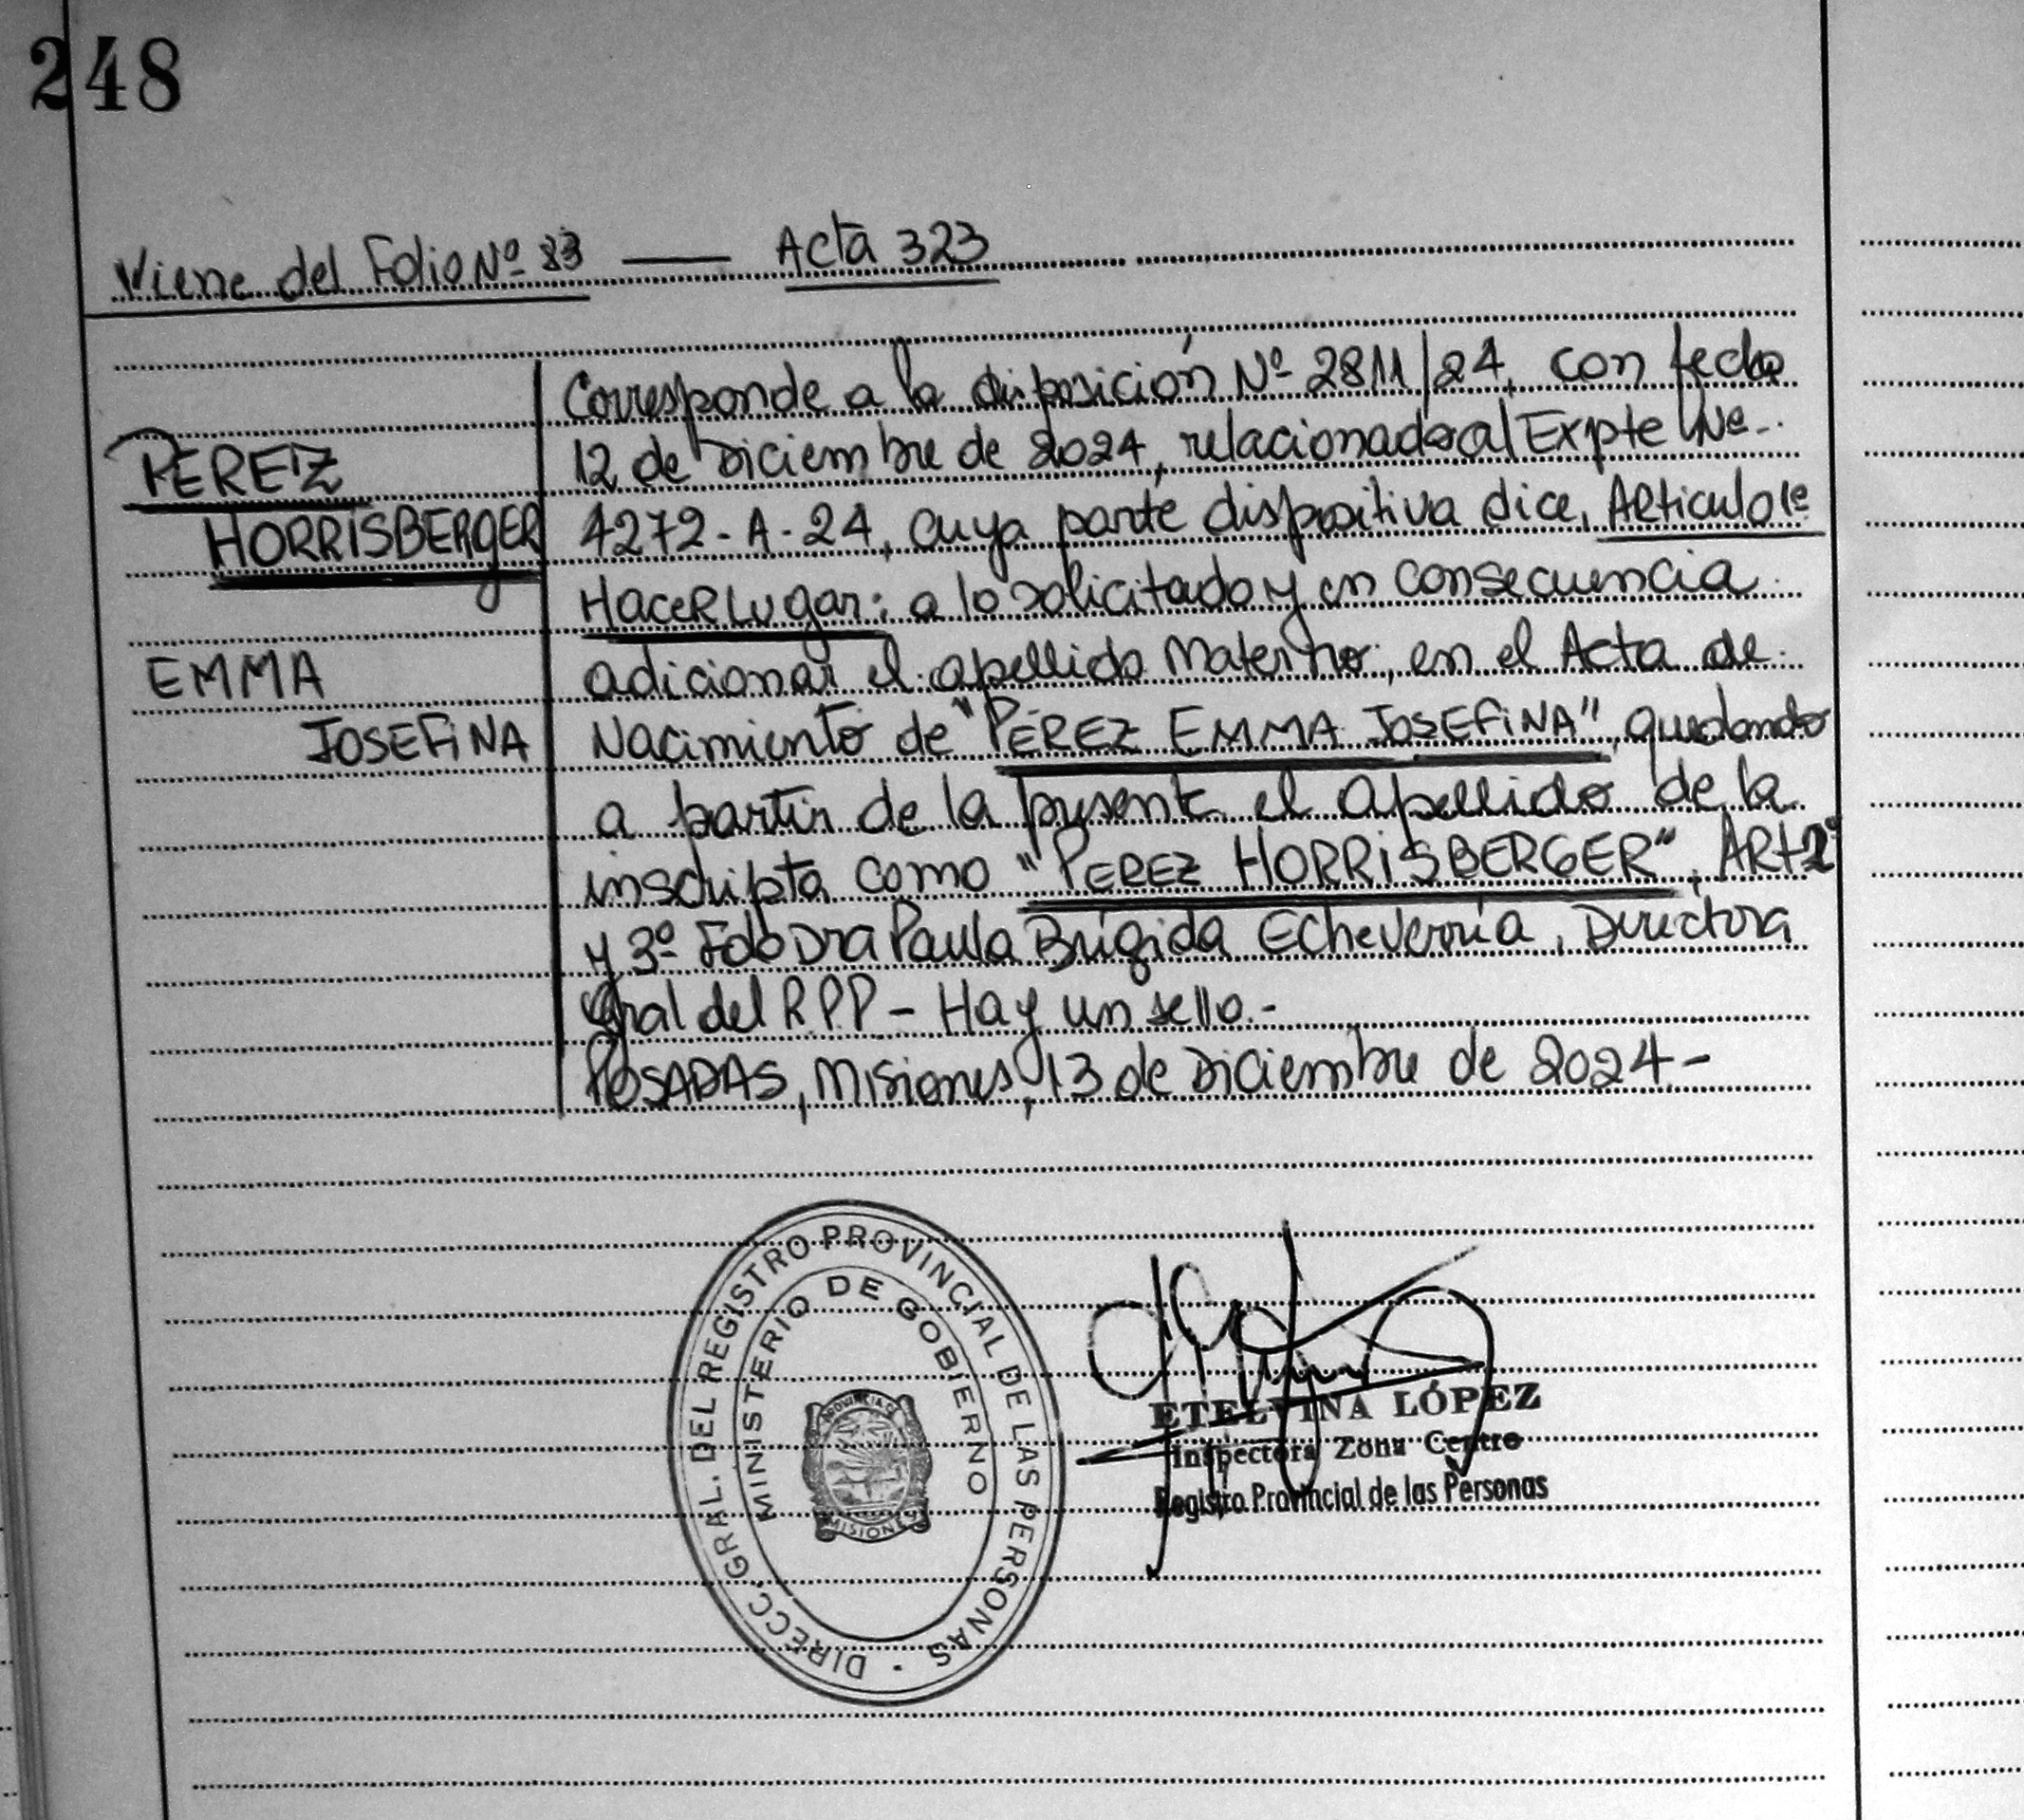 248
Viene del Folio Nº 83 — Acta 323
PEREZ
HORRISBERGER
EMMA
JOSEFINA
Corresponde a la disposición Nº 2811/24, con fecha
12 de Diciembre de 2024, relacionado al Expte Nº
4272-A-24, cuya parte dispositiva dice, Articulo 1º
HACER Lugar: a lo solicitado y en consecuencia
adicionar el apellido Materno, en el Acta de
Nacimiento de "PÉREZ EMMA JOSEFINA", quedando
a partir de la presente el apellido de la
inscripta como "PEREZ HORRISBERGER", ARt 2º
y 3º Fdo Dra Paula Brígida Echeverría, Directora
Gral del R.P.P - Hay un sello.-
POSADAS, Misiones, 13 de Diciembre de 2024-
DIRECC. GRAL. DEL REGISTRO PROVINCIAL DE LAS PERSONAS
MINISTERIO DE GOBIERNO
MISIONES
ETELVINA LÓPEZ
Inspectora Zona Centro
Registro Provincial de las Personas